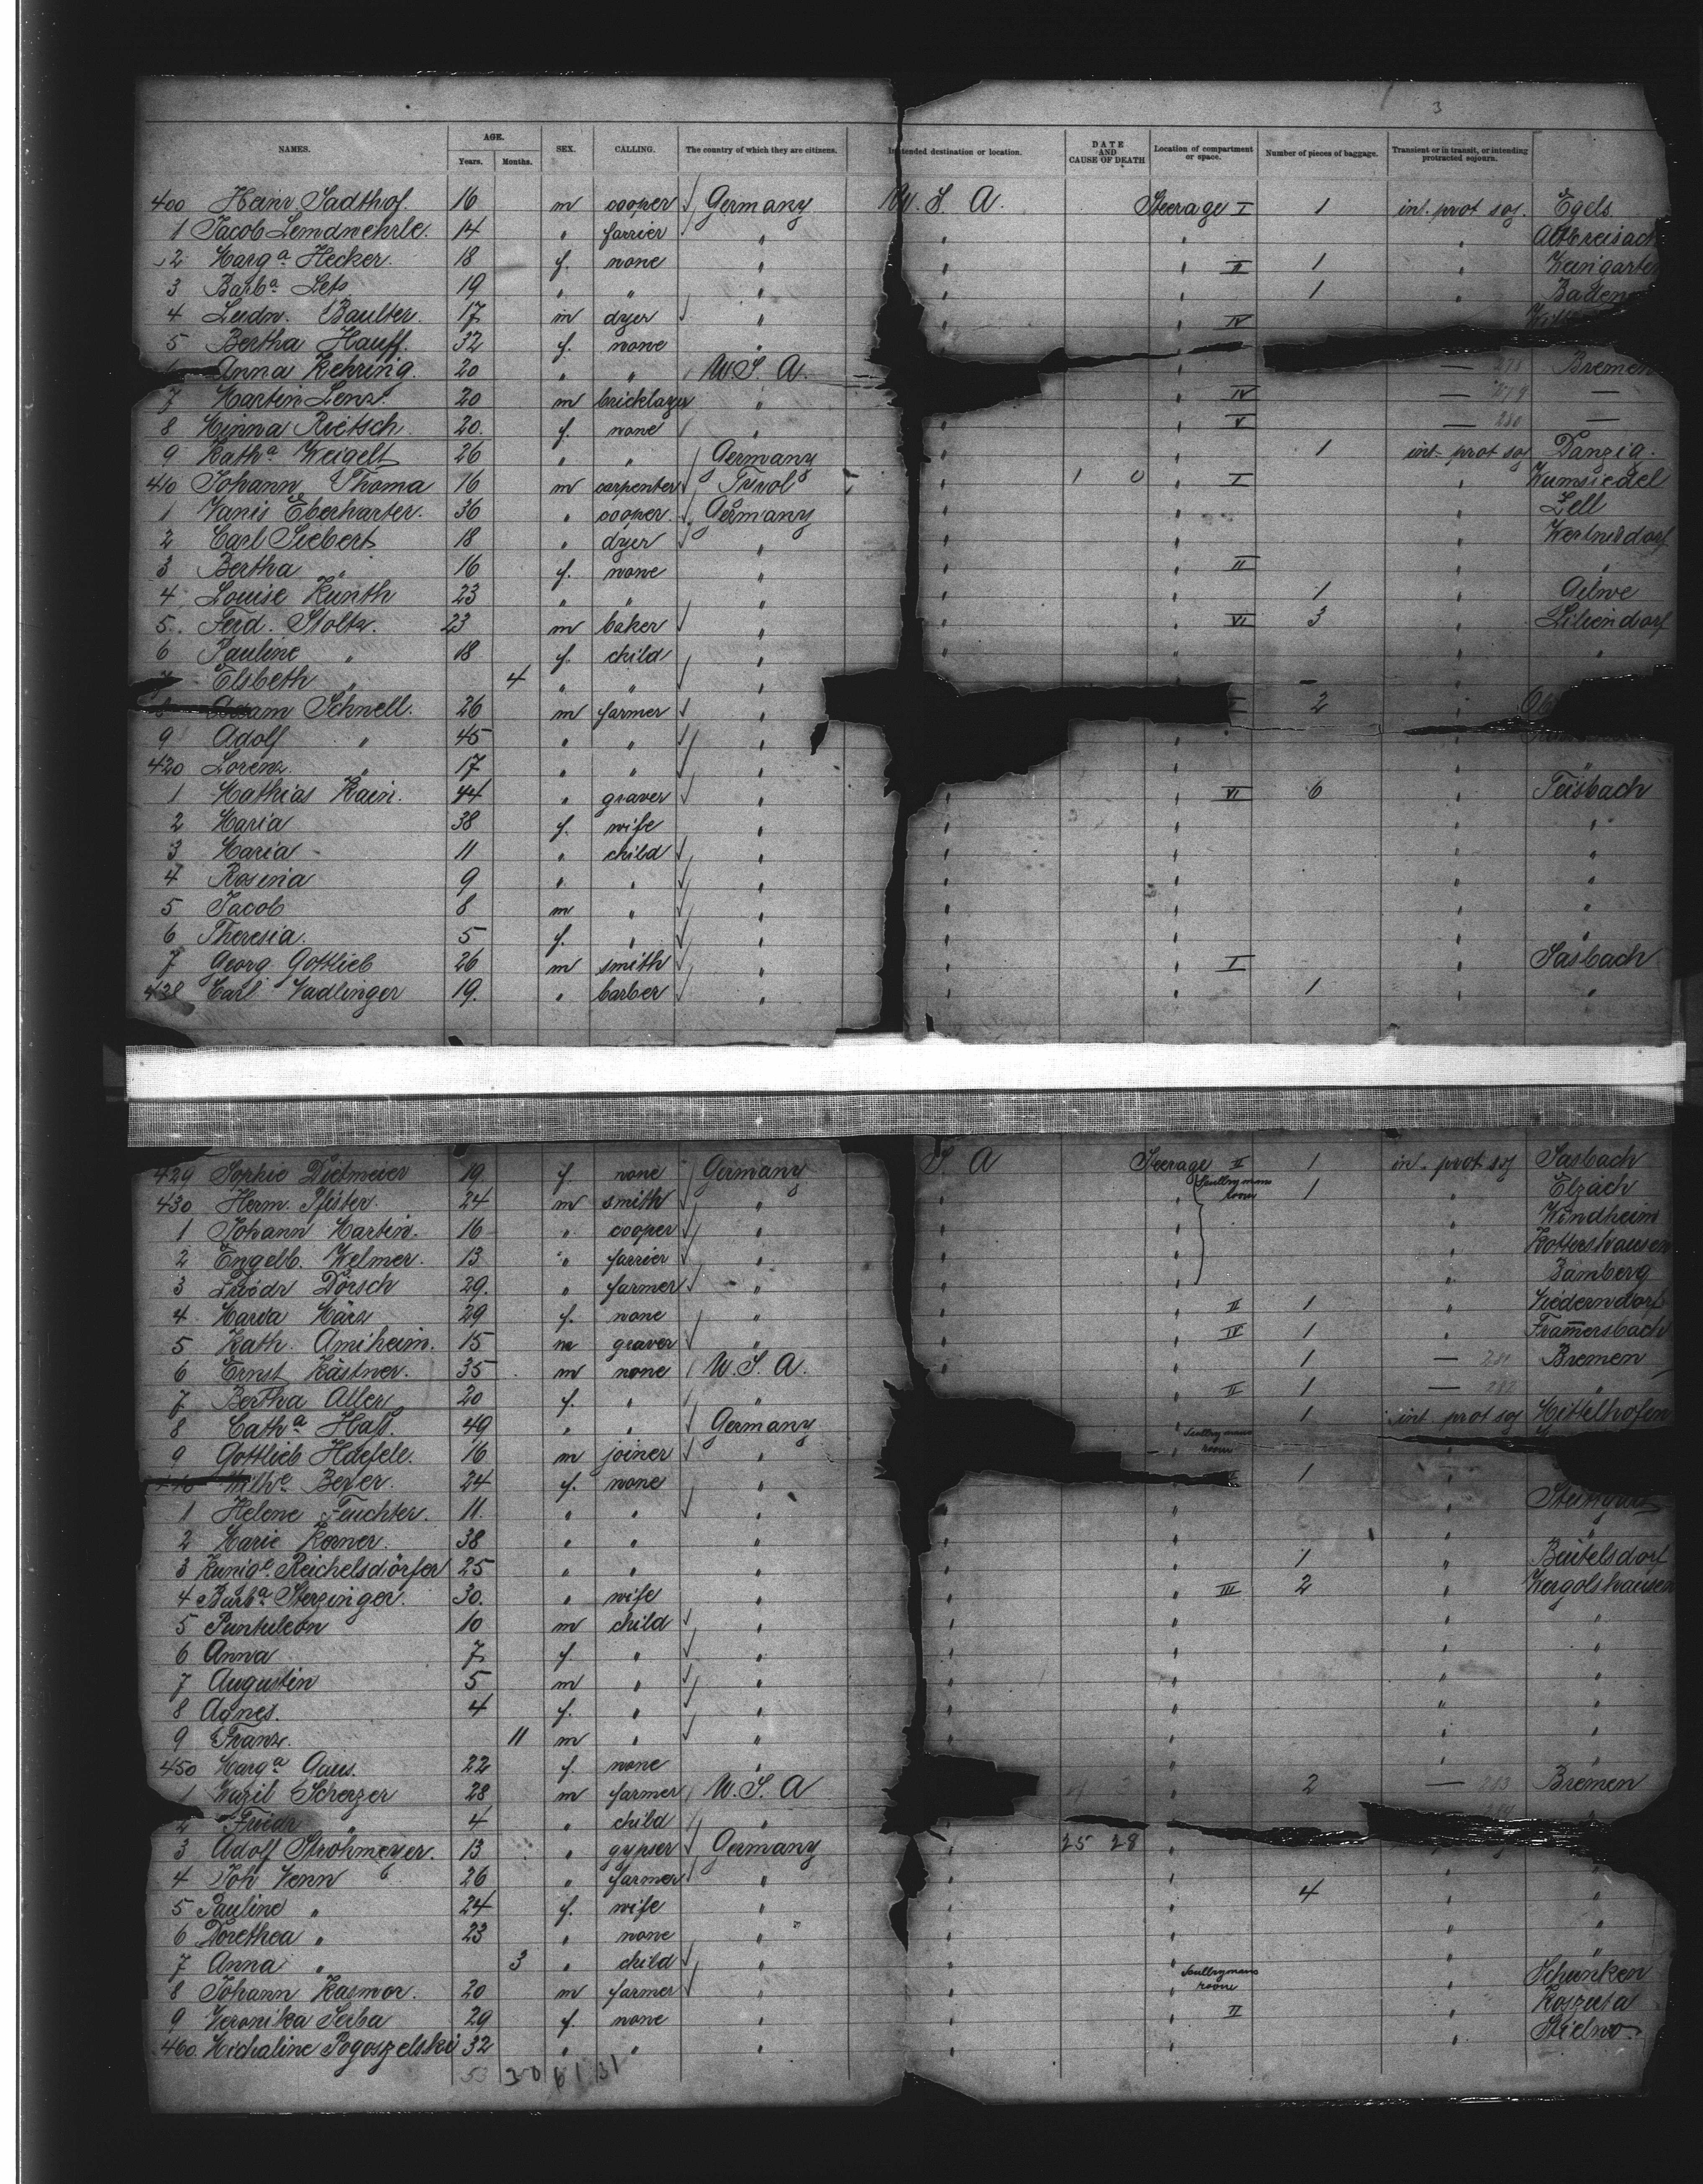 3
NAMES. AGE. Years. Months. SEX. CALLING. The country of which they are citizens. Intended destination or location. DATE AND CAUSE OF DEATH Location of compartment or space. Number of pieces of baggage. Transient or in transit, or intending protracted sojourn.
400 Heinr. Sadthof 16 m cooper Germany U. S. A. Steerage I 1 int. prot soj. Egels
1 Jacob Lemdwehrle. 14 " farrier " " " " Altbreisach
2 Marga Hecker. 18 f. none " " " II 1 " Weingarten
3 Barba Lets 19 " " " " " 1 " Baden
4 Ludw. Baulter. 17 m dyer " " " IV
5 Bertha Hauff. 32 f. none " "
Anna Kehring. 20 " " U. S. A. — 278 Bremen
7 Martin Lenz. 20 m bricklayer " " IV — 279 —
8 Minna Rietsch. 20. f. none " " " V — 280 —
9 Katha Weigelt 26 " " Germany " " 1 int. prot soj Danzig.
410 Johann Thoma 16 m carpenter Tyrol " 1 0 " I " Wumsiedel
1 Vanis Eberharter. 36 " cooper Germany " " " Zell
2 Carl Siebert 18 " dyer " " " " Wertnisdorf
3 Bertha " 16 f. none " " " II " "
4 Louise Kunth 23 " " " " " 1 " Adwe
5 Ferd. Stoltz. 23 m baker " " " VI 3 " Liliendorf
6 Pauline " 18 f. child " " " " "
Elsbeth " 4 " " "
Adam Schnell. 26 m farmer " 2 "
9 Adolf " 45 " " " " "
420 Lorenz " 17 " " " " " "
1 Mathias Kain. 44 " graver " " " VI 6 " Teisbach
2 Maria 38 f. wife " " " " "
3 Maria 11 " child " " " " "
4 Rosina 9 " " " " " " "
5 Jacob 8 m " " " " " "
6 Theresia. 5 f. " " " " " "
7 Georg Gottlieb 26 m smith " " " I " Sasbach
428 Carl Vadlinger 19. " barber " " " 1 " "
429 Sophie Dietmeier 19 f. none Germany S. A Steerage II 1 in. prot soj Sasbach
430 Herm. Pfister. 24 m smith " " " Scullrymans room 1 " Elzach
1 Johann Martin. 16 " cooper " " " " Windheim
2 Engelb. Welmer. 13 " farrier " " " " Rottershausen
3 Friedr Dörsch 29. " farmer " " " " Bamberg
4 Maria März 29 f. none " " " II 1 " Niederndorf
5 Kath. Amiheim. 15 m graver " " " IV 1 " Frammersbach
6 Ernst Kästner. 35 m none U. S. A. " " 1 — 281 Bremen
7 Bertha Aller 20 f. " " " II 1 — 282 "
8 Catha Haß. 49 " " Germany 1 int prot soj Mittelhofen
9 Gottlieb Haefele. 16 m joiner " " Scullrymans room
Wilhe Beyer. 24 f. none " 1 "
1 Helene Feuchter. 11. " " " " " " Stuttgart
2 Marie Korner. 38 " " " " " " "
3 Kunige. Reichelsdörfer 25 " " " " " 1 " Beutelsdorf
4 Barba Sterzinger. 30. " wife " " " III 2 " Wergolshausen
5 Puntuleon 10 m child " " " " "
6 Anna 7 f. " " " " " "
7 Augustin 5 m " " " " " "
8 Agnes. 4 f. " " " " " "
9 Franz. 11 m " " " " " "
450 Marga Gaus. 22 f. none " " " "
1 Wazil Scherzer 28 m farmer U. S. A " 2 — 283 Bremen
2 Friedr " 4 " child " 284
3 Adolf Strohmeyer. 13 " gypser Germany " 25 28
4 Joh Venn 26 " farmer " " " " "
5 Pauline " 24 f. wife " " " 4 " "
6 Dorethea " 23 " none " " " " "
7 Anna " 3 " child " " " " "
8 Johann Kasmor. 20 m farmer " " " Scullrymans room " Schünken
9 Veronika Serba 29 f. none " " " II " Koszuta
460. Michaline Pogoszelski 32 " " " " " " Stielno
53 30 61 31